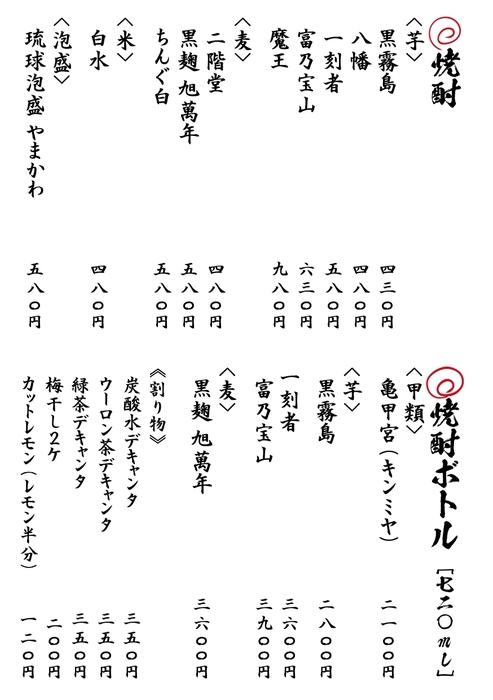 焼酎
〈芋〉
黒霧島 四三〇円
八幡 四八〇円
一刻者 五八〇円
富乃宝山 六三〇円
魔王 九八〇円
〈麦〉
二階堂 四八〇円
黒麹 旭萬年 五八〇円
ちんぐ白 五八〇円
〈米〉
白水 四八〇円
〈泡盛〉
琉球泡盛 やまかわ 五八〇円
焼酎ボトル [七二〇ml]
〈甲類〉
亀甲宮(キンミヤ) 二一〇〇円
〈芋〉
黒霧島 二八〇〇円
一刻者 三六〇〇円
富乃宝山 三九〇〇円
〈麦〉
黒麹 旭萬年 三六〇〇円
《割り物》
炭酸水デキャンタ 三五〇円
ウーロン茶デキャンタ 三五〇円
緑茶デキャンタ 三五〇円
梅干し2ケ 二〇〇円
カットレモン(レモン半分) 一二〇円